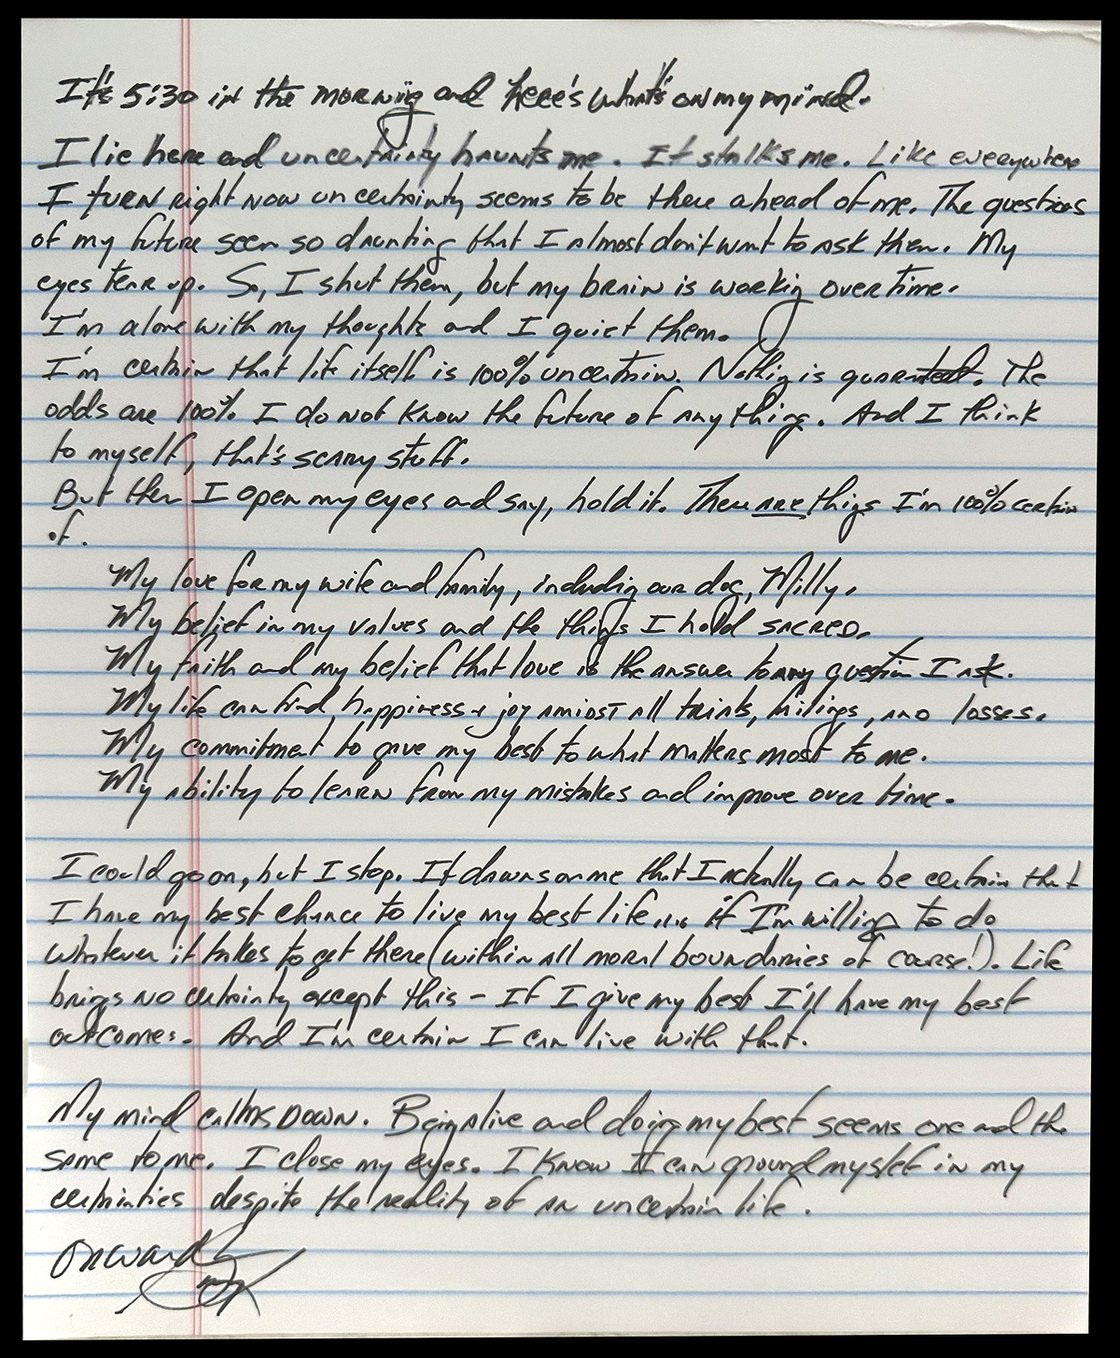 It's 5:30 in the morning and here's what's on my mind.
I lie here and uncertainty haunts me. It stalks me. Like everywhere
I turn right now uncertainty seems to be there ahead of me. The questions
of my future seem so daunting that I almost don't want to ask them. My
eyes tear up. So, I shut them, but my brain is working overtime.
I'm alone with my thoughts and I quiet them.
I'm certain that life itself is 100% uncertain. Nothing is guaranteed. The
odds are 100% I do not know the future of anything. And I think
to myself, that's scary stuff.
But then I open my eyes and say, hold it. There are things I'm 100% certain
of.
My love for my wife and family, including our dog, Milly.
My belief in my values and the things I hold sacred.
My faith and my belief that love is the answer to any question I ask.
My life can find happiness + joy amidst all trials, failings, and losses.
My commitment to give my best to what matters most to me.
My ability to learn from my mistakes and improve over time.
I could go on, but I stop. It dawns on me that I actually can be certain that
I have my best chance to live my best life.... if I'm willing to do
whatever it takes to get there (within all moral boundaries of course!). Life
brings no certainty except this - If I give my best I'll have my best
outcomes. And I'm certain I can live with that.
My mind calms down. Being alive and doing my best seems one and the
same to me. I close my eyes. I know I can ground myslef in my
certainties despite the reality of an uncertain life.
Onward